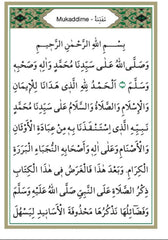 Mukaddime - مُقَدِّمَةٌ
بِسْمِ اللهِ الرَّحْمٰنِ الرَّحِيمِ
وَصَلَّى اللهُ عَلٰى سَيِّدِنَا مُحَمَّدٍ وَاٰلِهِ وَصَحْبِهِ
وَسَلَّمَ ۞ اَلْحَمْدُ لِلّٰهِ الَّذِى هَدَانَا لِلْاِيمَانِ
وَالْاِسْلَامِ وَالصَّلَاةُ وَالسَّلَامُ عَلٰى سَيِّدِنَا مُحَمَّدٍ
نَبِيِّهِ الَّذِى اسْتَنْقَذَنَا بِهِ مِنْ عِبَادَةِ الْاَوْثَانِ
وَالْاَصْنَامِ وَعَلٰى اٰلِهِ وَاَصْحَابِهِ النُّجَبَاءِ الْبَرَرَةِ
الْكِرَامِ وَبَعْدَ هٰذَا فَالْغَرَضُ فِى هٰذَا الْكِتَابِ
ذِكْرُ الصَّلَاةِ عَلَى النَّبِيِّ صَلَّى اللهُ عَلَيْهِ وَسَلَّمَ
وَفَضَائِلِهَا نَذْكُرُهَا مَحْذُوفَةَ الْاَسَانِيدِ لِيَسْهُلَ